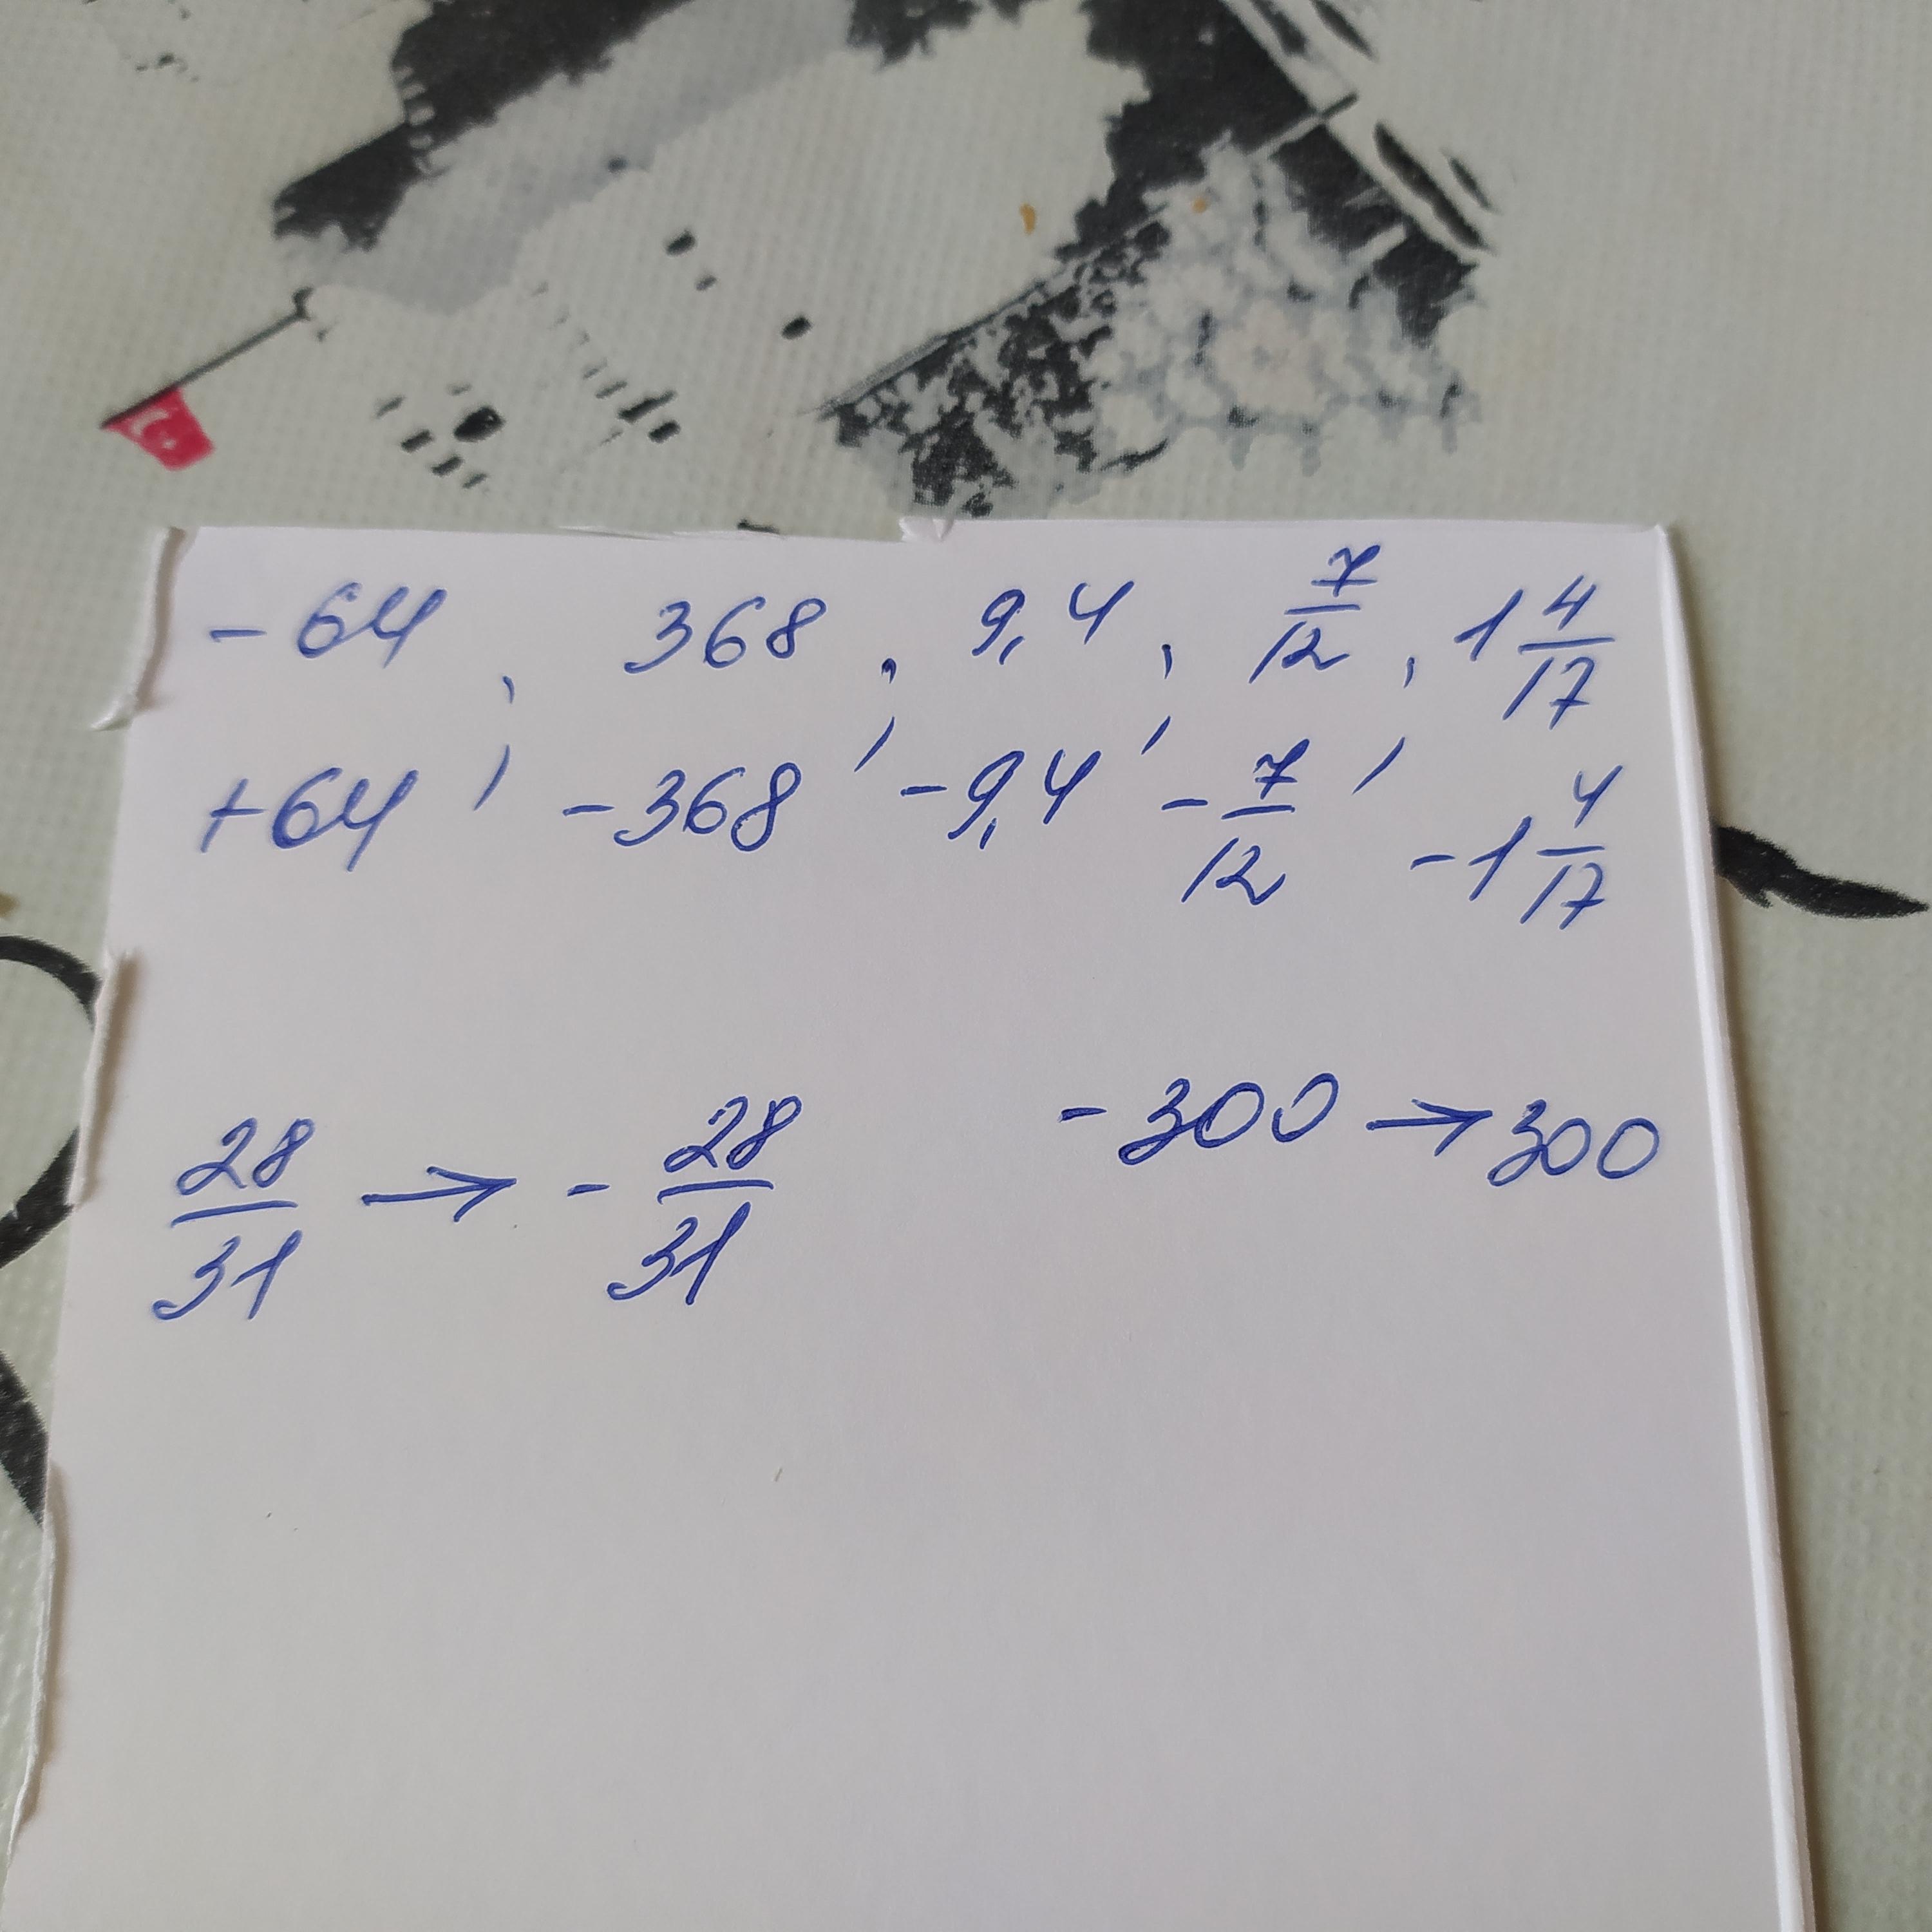 -64, 368, 9,4, 7/12, 1 4/17
+64, -368, -9,4, -7/12, -1 4/17
28/31 → -28/31 -300 → 300